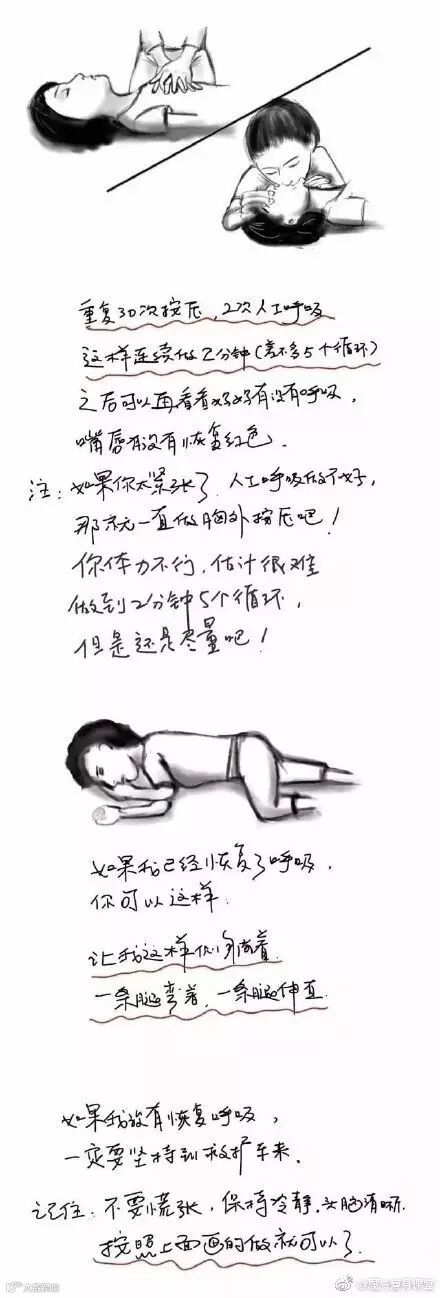 重复30次按压,2次人工呼吸
这样连续做2分钟(差不多5个循环)
之后可以再看看妈妈有没有呼吸,
嘴唇有没有恢复红色.
注:如果你太紧张了.人工呼吸做不好,
那就一直做胸外按压吧!
你体力不行,估计很难
做到2分钟5个循环,
但是还是尽量吧!
如果我已经恢复了呼吸.
你可以这样:
让我这样侧躺着.
一条腿弯着,一条腿伸直.
如果我没有恢复呼吸,
一定要坚持到救护车来.
记住:不要慌张,保持冷静,头脑清晰.
按照上面画的做就可以了.